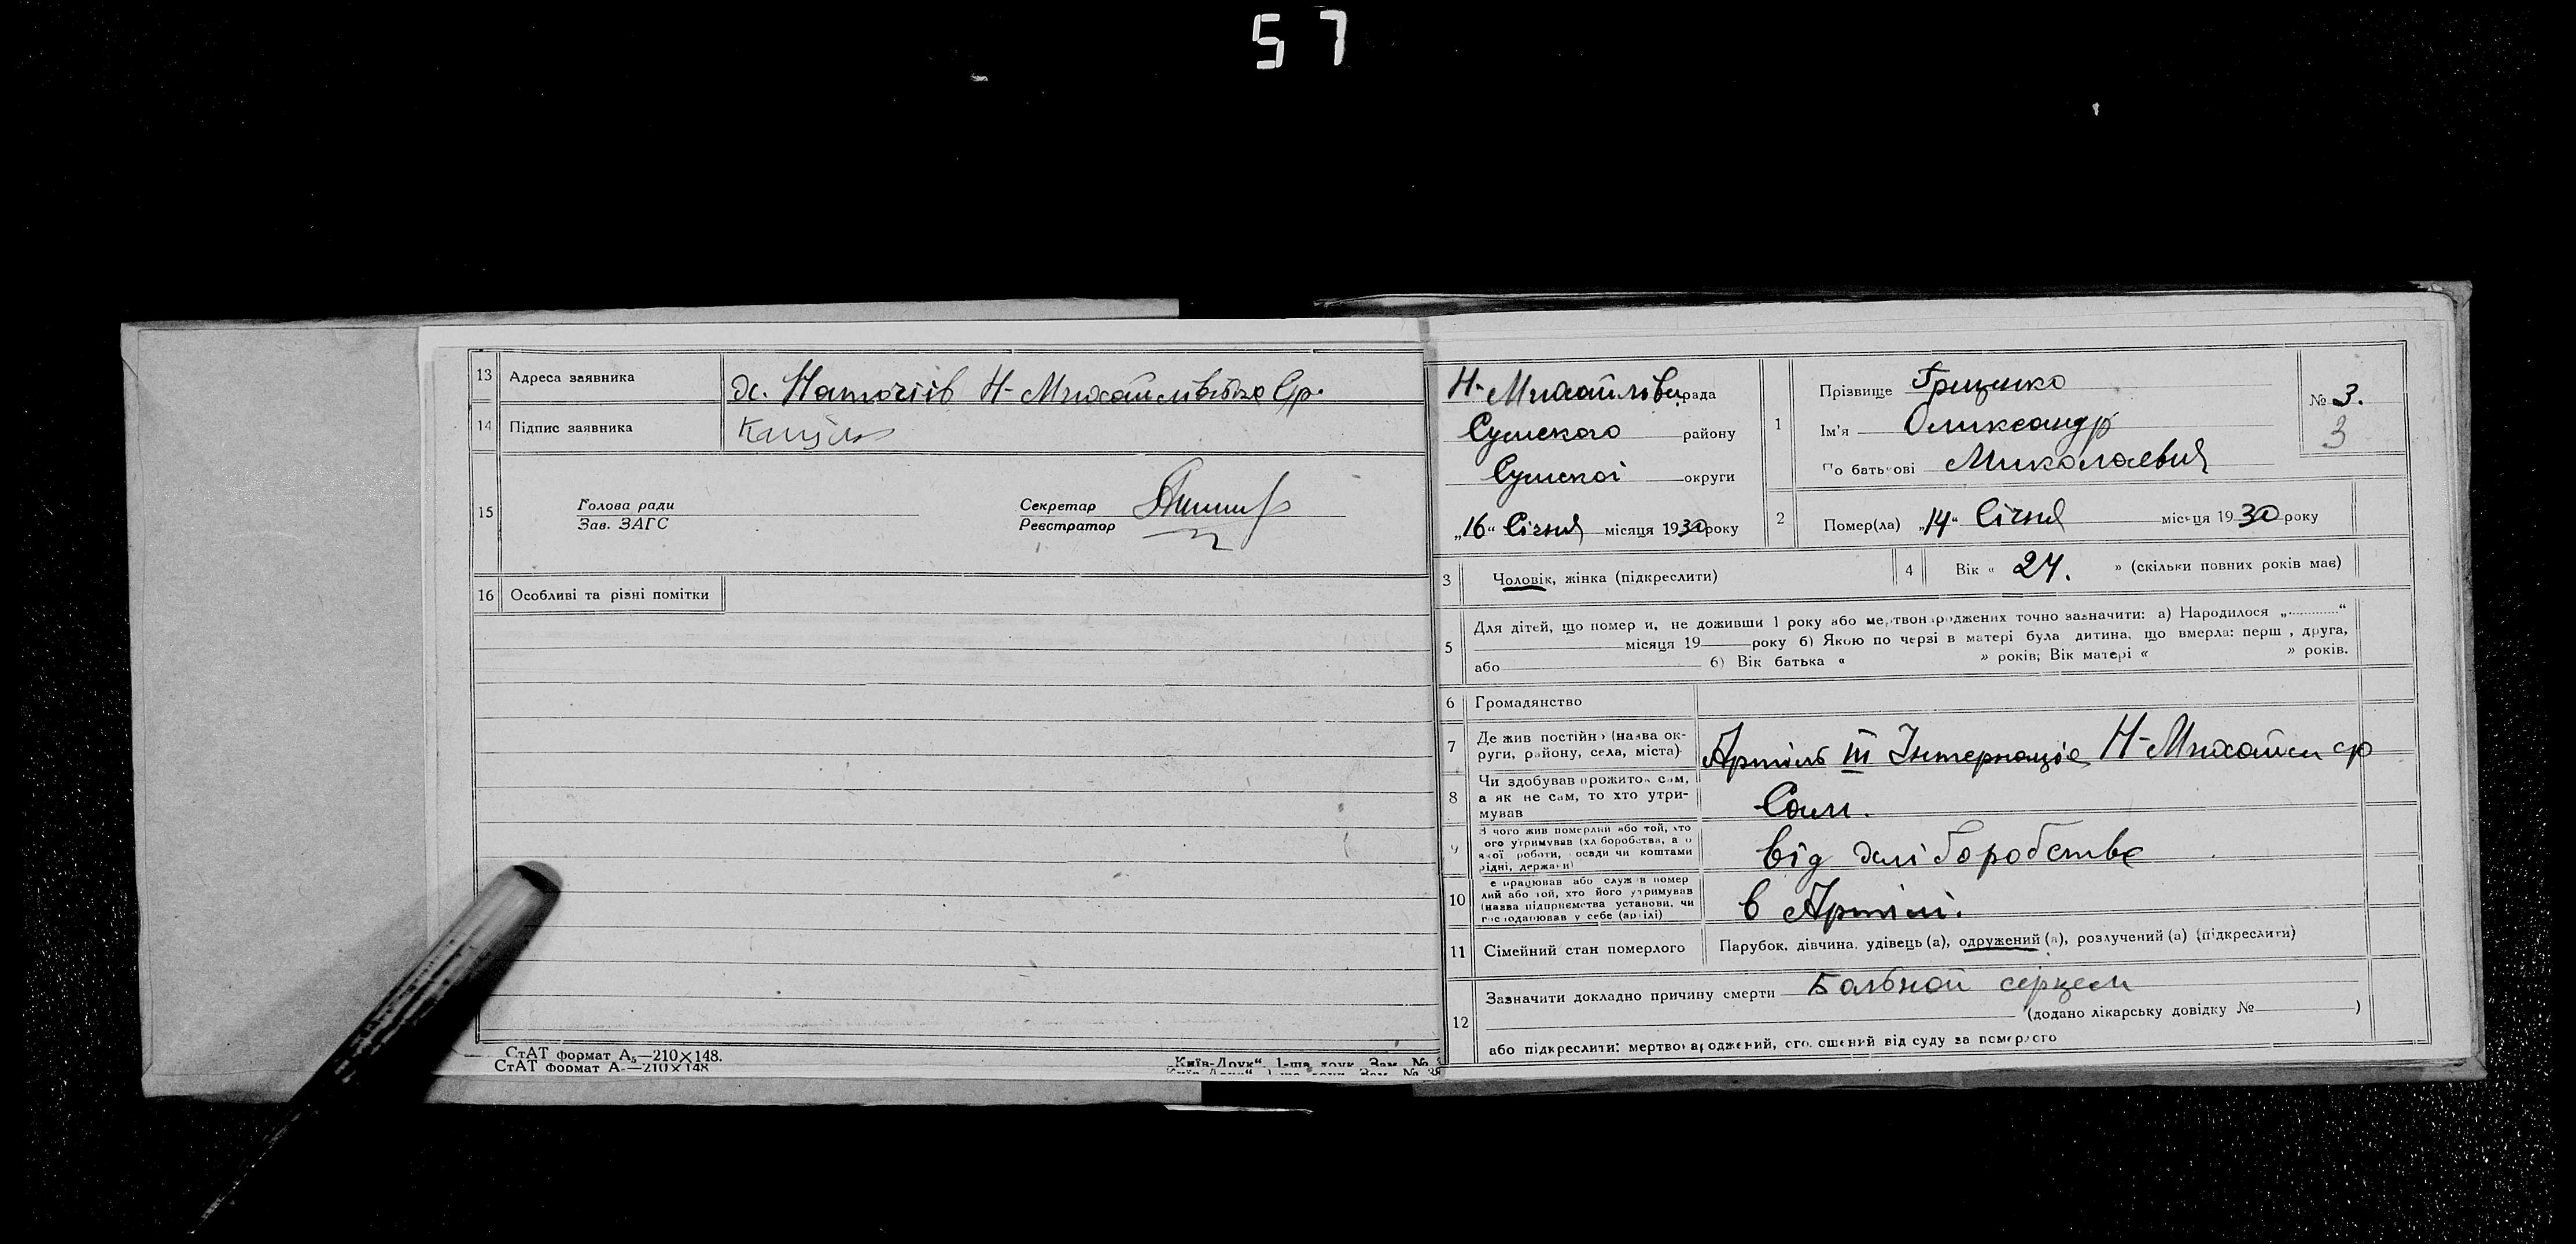 57
13 Адреса заявника х. Наточіїв Н-Михайлівська Ср.
14 Підпис заявника
15 Голова ради
Зав. ЗАГС
Секретар
Реєстратор
16 Особливі та різні помітки
СтАТ формат А₅—210×148.
СтАТ формат А —210×148
Київ-Друк“, 1-ша друк. Зам. №
Н-Михайлівськ рада
Сумського району
Сумської округи
„16“ Січня місяця 1930 року
1 Прізвище Грищенко
Ім'я Оликсандр
По батькові Миколаєвич
№ 3.
3
2 Помер(ла) „14“ Січня місяця 1930 року
3 Чоловік, жінка (підкреслити)
4 Вік « 24. » (скільки повних років має)
5 Для дітей, що померли, не доживши 1 року або мертвонароджених точно зазначити: а) Народилося „............“
місяця 19 року б) Якою по черзі в матері була дитина, що вмерла: перш , друга,
або б) Вік батька « » років; Вік матері « » років.
6 Громадянство
7 Де жив постійно (назва ок-
руги, району, села, міста) Артіль III Інтернаціо Н-Михайлі ср
8 Чи здобував прожиток сам,
а як не сам, то хто утри-
мував Сам.
9 З чого жив померлий або той, хто
його утримував (хліборобства, а о
якої роботи, посади чи коштами
рідні, держави) від хліборобства
10 е працював або служив помер
лий або той, хто його утримував
(назва підприємства установи, чи
господарював у себе (артілі) в Артілі.
11 Сімейний стан померлого Парубок, дівчина, удівець (а), одружений (а), розлучений (а) (підкреслити)
12 Зазначити докладно причину смерти Больной серцем
(додано лікарську довідку № )
або підкреслити: мертвонароджений, оголошений від суду за померлого